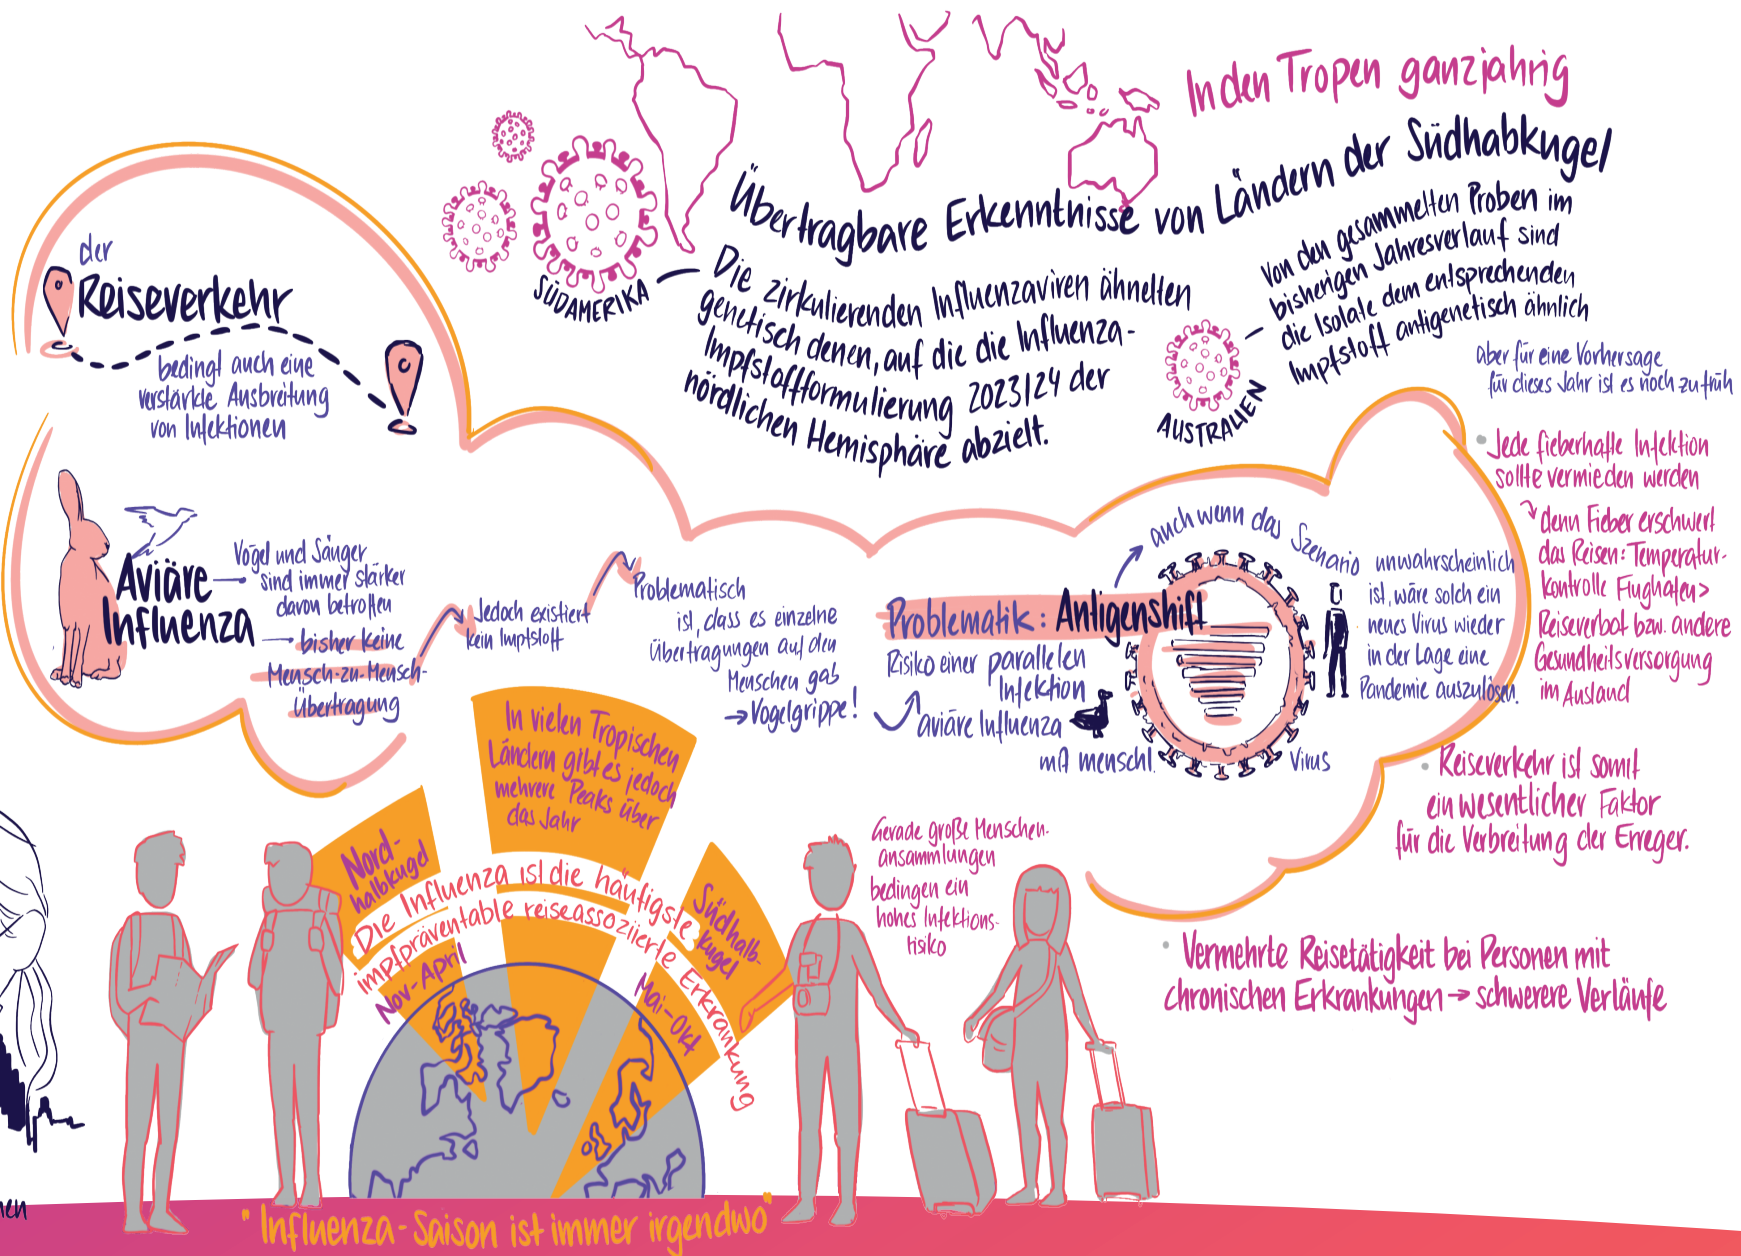 In den Tropen ganzjahrig
Übertragbare Erkenntnisse von Ländern der Südhabkugel
SÜDAMERIKA
Die zirkulierenden Influenzaviren ähnelten
genetisch denen, auf die die Influenza-
Impfstoffformulierung 2023/24 der
nördlichen Hemisphäre abzielt.
AUSTRALIEN
Von den gesammelten Proben im
bisherigen Jahresverlauf sind
die Isolate dem entsprechenden
Impfstoff antigenetisch ähnlich
aber für eine Vorhersage
für dieses Jahr ist es noch zu früh
der
Reiseverkehr
bedingt auch eine
verstärkte Ausbreitung
von Infektionen
Aviäre
Influenza
Vögel und Säuger
sind immer stärker
davon betroffen
bisher keine
Mensch-zu-Mensch-
Übertragung
Jedoch existiert
kein Impfstoff
Problematisch
ist, dass es einzelne
Übertragungen auf den
Menschen gab
→ Vogelgrippe!
Problematik: Antigenshift
Risiko einer parallelen
Infektion
aviäre Influenza
mit menschl. Virus
auch wenn das Szenario
unwahrscheinlich
ist, wäre solch ein
neues Virus wieder
in der Lage eine
Pandemie auszulösen.
• Jede fieberhafte Infektion
sollte vermieden werden
denn Fieber erschwert
das Reisen: Temperatur-
kontrolle Flughafen >
Reiseverbot bzw. andere
Gesundheitsversorgung
im Ausland
• Reiseverkehr ist somit
ein wesentlicher Faktor
für die Verbreitung der Erreger.
• Vermehrte Reisetätigkeit bei Personen mit
chronischen Erkrankungen → schwerere Verläufe
Gerade große Menschen-
ansammlungen
bedingen ein
hohes Infektions-
risiko
In vielen Tropischen
Ländern gibt es jedoch
mehrere Peaks über
das Jahr
Nord-
halbkugel
Südhalb-
kugel
Die Influenza ist die häufigste
impfpräventable reiseassoziierte Erkrankung
Nov-April
Mai-Okt
"Influenza-Saison ist immer irgendwo"